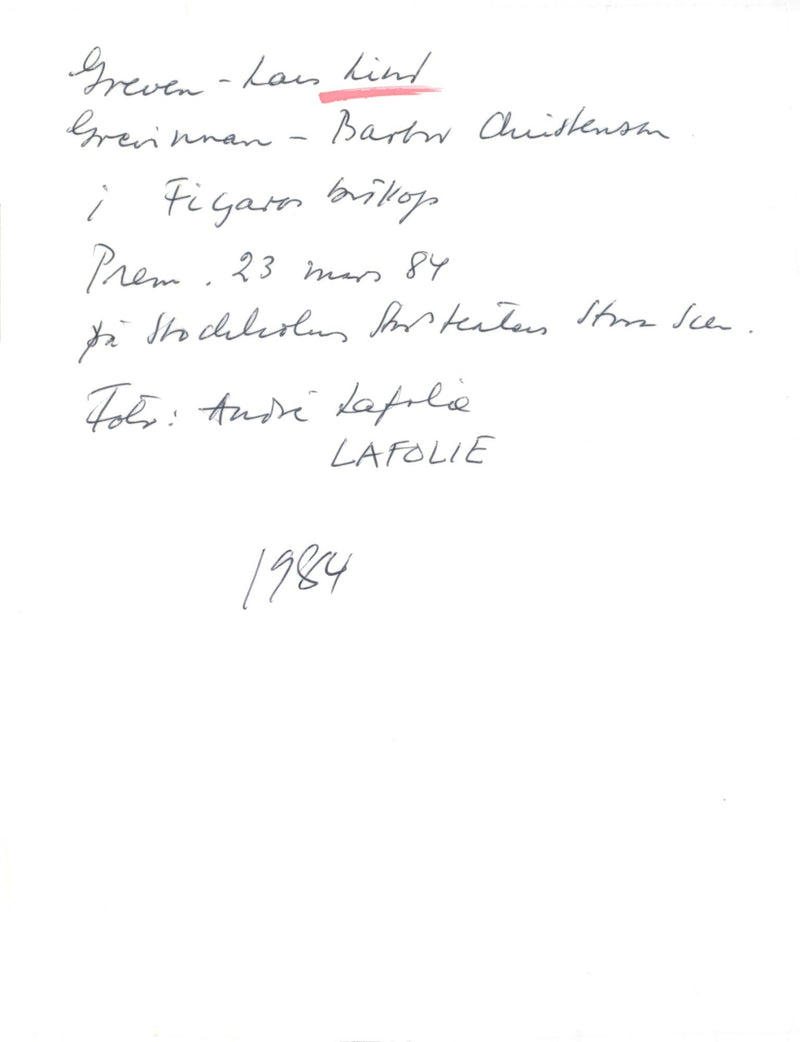 Greven - Lars Lind
Grevinnan - Barbro Christenson
i Figaros bröllop
Prem. 23 mars 84
på Stockholms Stadsteaters Stora Scen.
Foto: André Lafolie
LAFOLIE
1984